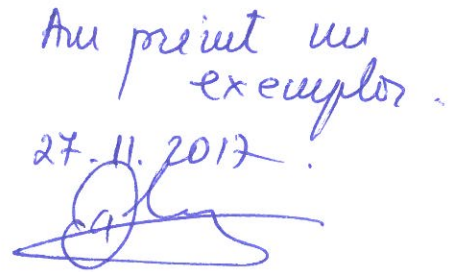 Am primit un
exemplar.
27.11.2017.